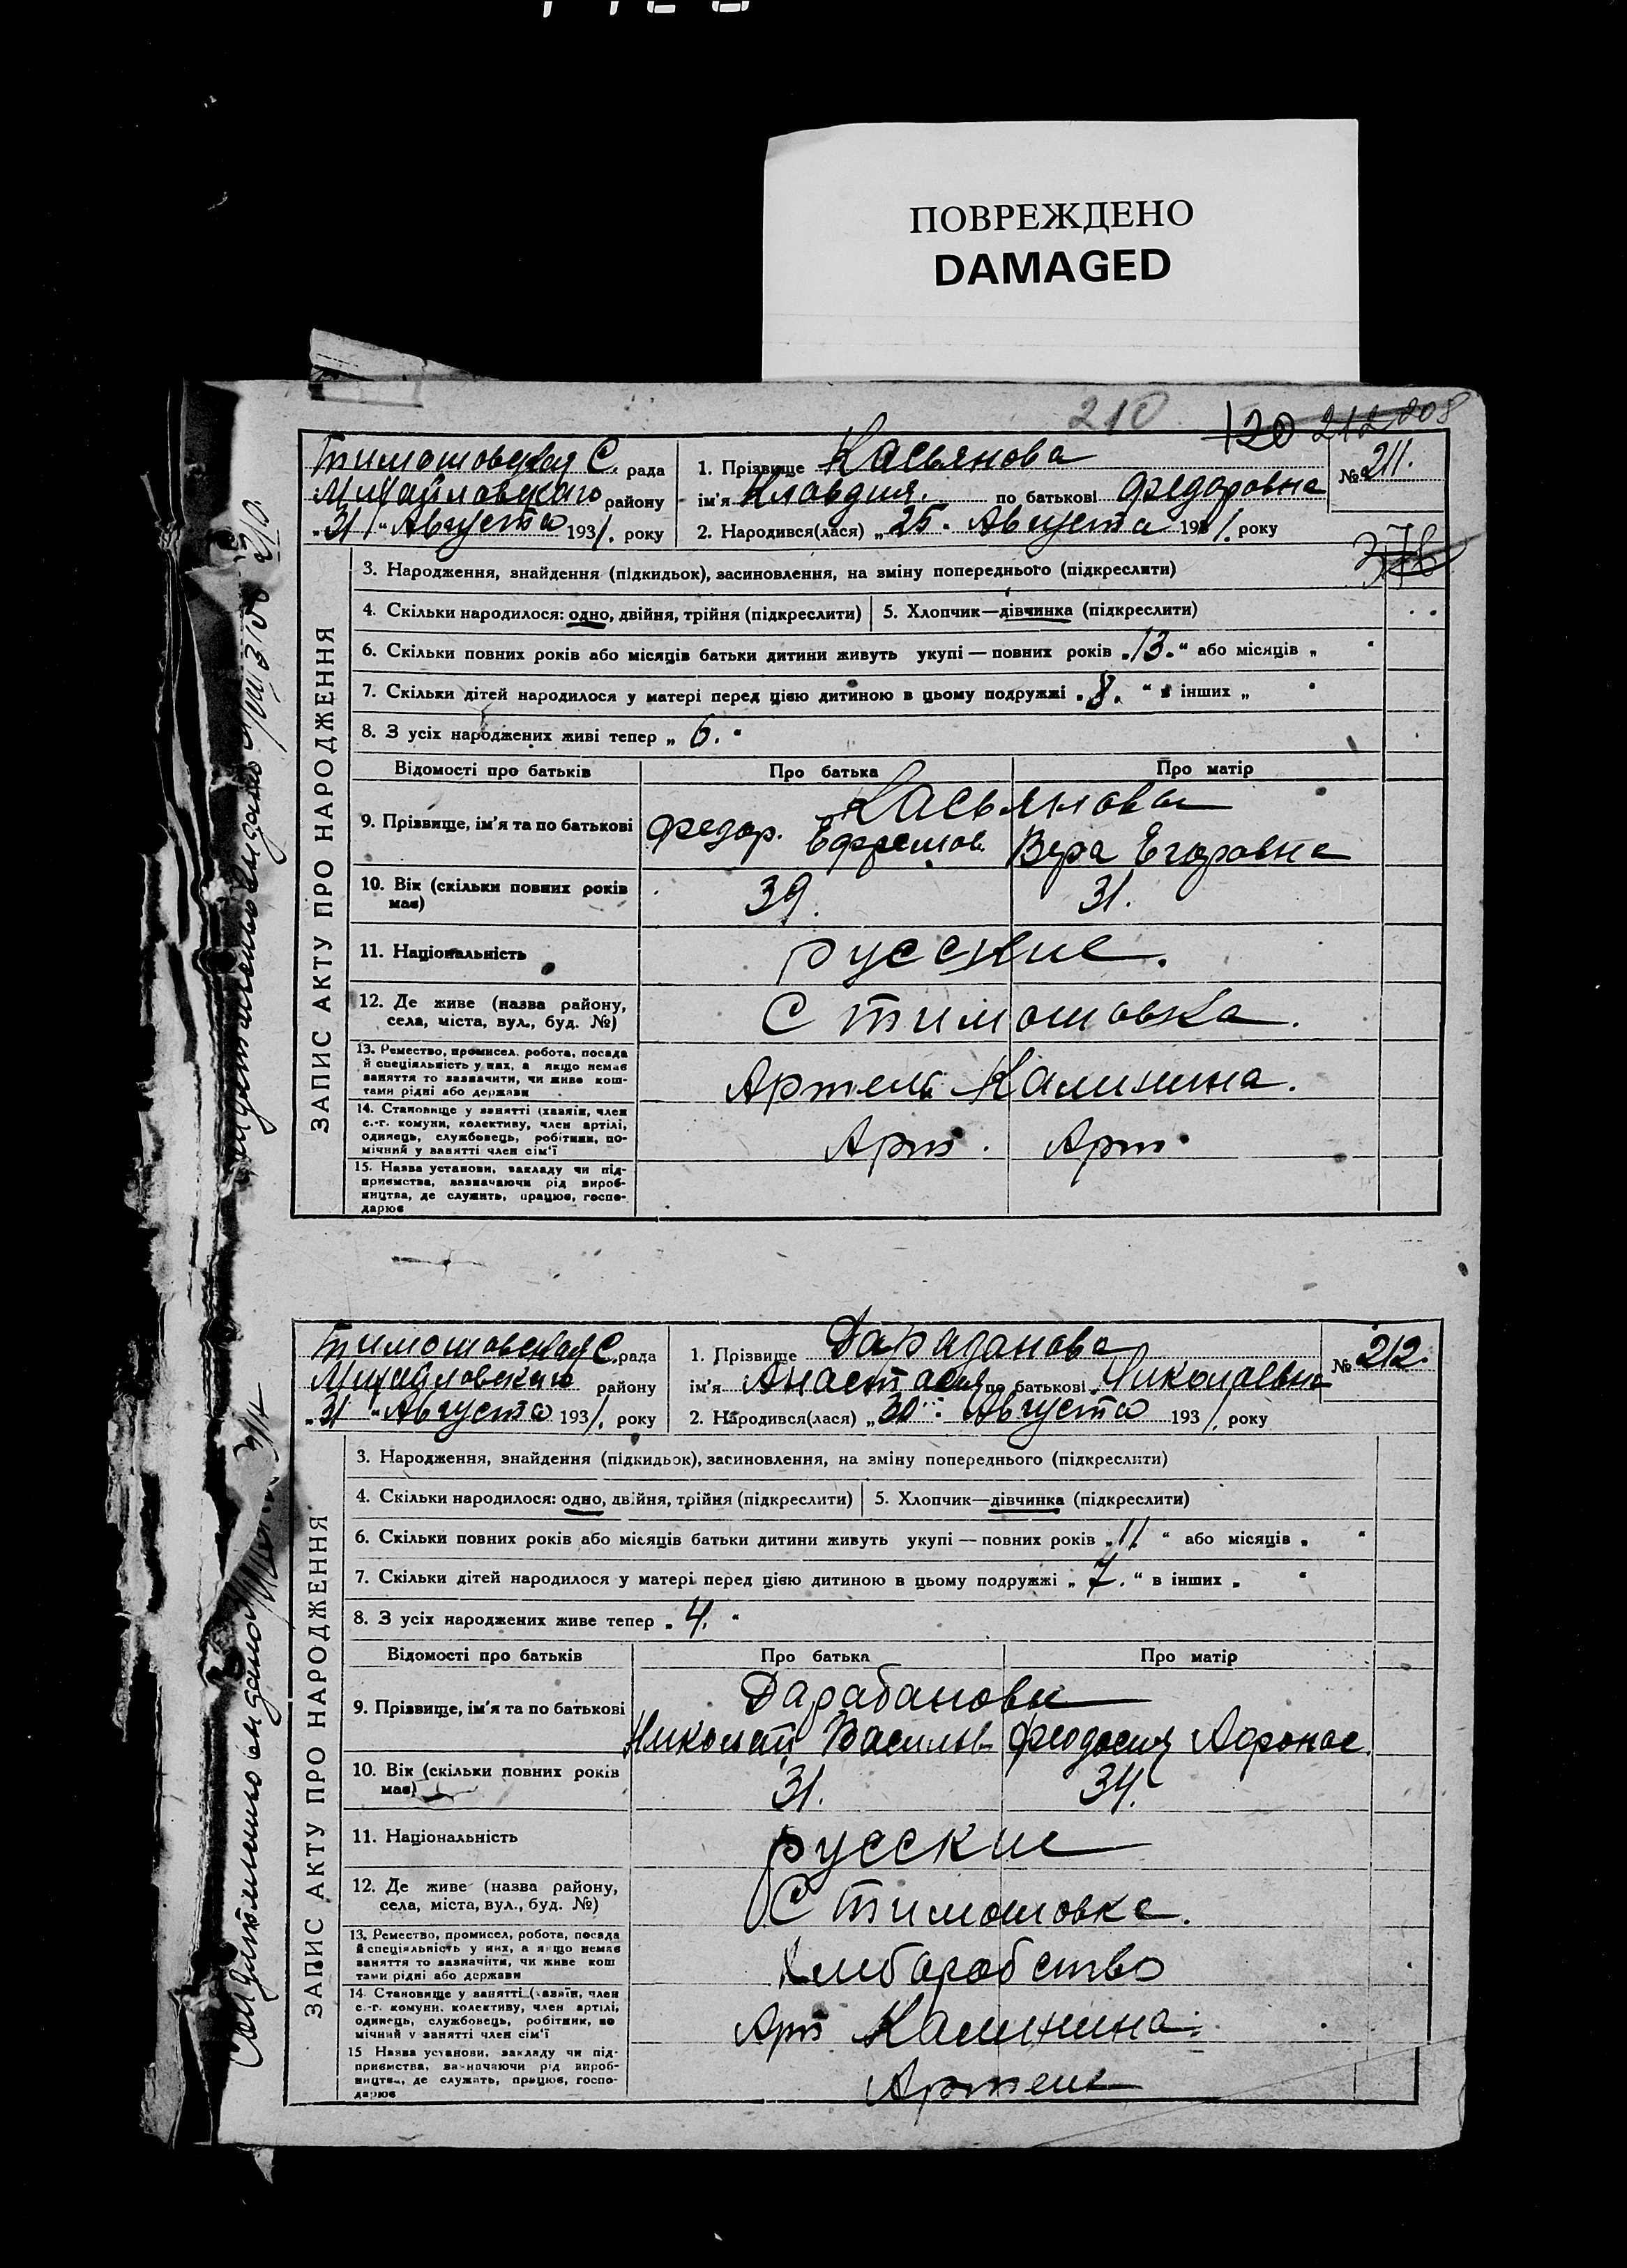 ПОВРЕЖДЕНО
DAMAGED
210 120 212 208
Тимошовская С. рада
Михайловского району
„31“ Августа 1931. року
1. Прізвище Касьянова
ім'я Клавдия. по батькові Федоровна
2. Народився(лася) „25. Августа 1931. року
№ 211.
378
ЗАПИС АКТУ ПРО НАРОДЖЕННЯ
3. Народження, знайдення (підкидьок), засиновлення, на зміну попереднього (підкреслити)
4. Скільки народилося: одно, двійня, трійня (підкреслити) 5. Хлопчик—дівчинка (підкреслити)
6. Скільки повних років або місяців батьки дитини живуть укупі — повних років „13.“ або місяців „ “
7. Скільки дітей народилося у матері перед цією дитиною в цьому подружжі „8.“ в інших „ “
8. З усіх народжених живі тепер „6.“
Відомості про батьків Про батька Про матір
9. Прізвище, ім'я та по батькові
Касьяновы
Федор. Ефремов. Вера Егоровна
10. Вік (скільки повних років
має)
39. 31.
11. Національність русские.
12. Де живе (назва району,
села, міста, вул., буд. №)
С Тимошовка.
13. Ремество, промисел, робота, посада
й спеціяльність у них, а якщо немає
заняття то зазначити, чи живе кош-
тами рідні або держави
Артель Калинина.
14. Становище у занятті (хазяїн, член
с.-г. комуни, колективу, член артілі,
одинець, службовець, робітник, по-
мічний у занятті член сім'ї
Арт. Арт.
15. Назва установи, закладу чи під-
приємства, зазначаючи рід вироб-
ництва, де служить, працює, госпо-
дарює
Тимошовская С. рада
Михайловского району
„31“ Августа 1931. року
1. Прізвище Дараганова
ім'я Анастасия по батькові Николаевна
2. Народився(лася) „30“. Августа 1931. року
№ 212.
ЗАПИС АКТУ ПРО НАРОДЖЕННЯ
3. Народження, знайдення (підкидьок), засиновлення, на зміну попереднього (підкреслити)
4. Скільки народилося: одно, двійня, трійня (підкреслити) 5. Хлопчик—дівчинка (підкреслити)
6. Скільки повних років або місяців батьки дитини живуть укупі — повних років „11.“ або місяців „ “
7. Скільки дітей народилося у матері перед цією дитиною в цьому подружжі „7.“ в інших „ “
8. З усіх народжених живе тепер „4.“
Відомості про батьків Про батька Про матір
9. Прізвище, ім'я та по батькові
Дарабановы
Николай Васильв Феодосия Афонас.
10. Вік (скільки повних років
має)
31. 34.
11. Національність русские
12. Де живе (назва району,
села, міста, вул., буд. №)
С Тимошовке.
13. Ремество, промисел, робота, посада
й спеціяльність у них, а якщо немає
заняття то зазначити, чи живе кош
тами рідні або держави
Хлиборобство
14 Становище у занятті (хазяїн, член
с.-г. комуни, колективу, член артілі,
одинець, службовець, робітник, по
мічний у занятті член сім'ї
Арт Калинина.
15 Назва установи, закладу чи під-
приємства, зазначаючи рід вироб-
ництва, де служить, працює, госпо-
дарює
Артель